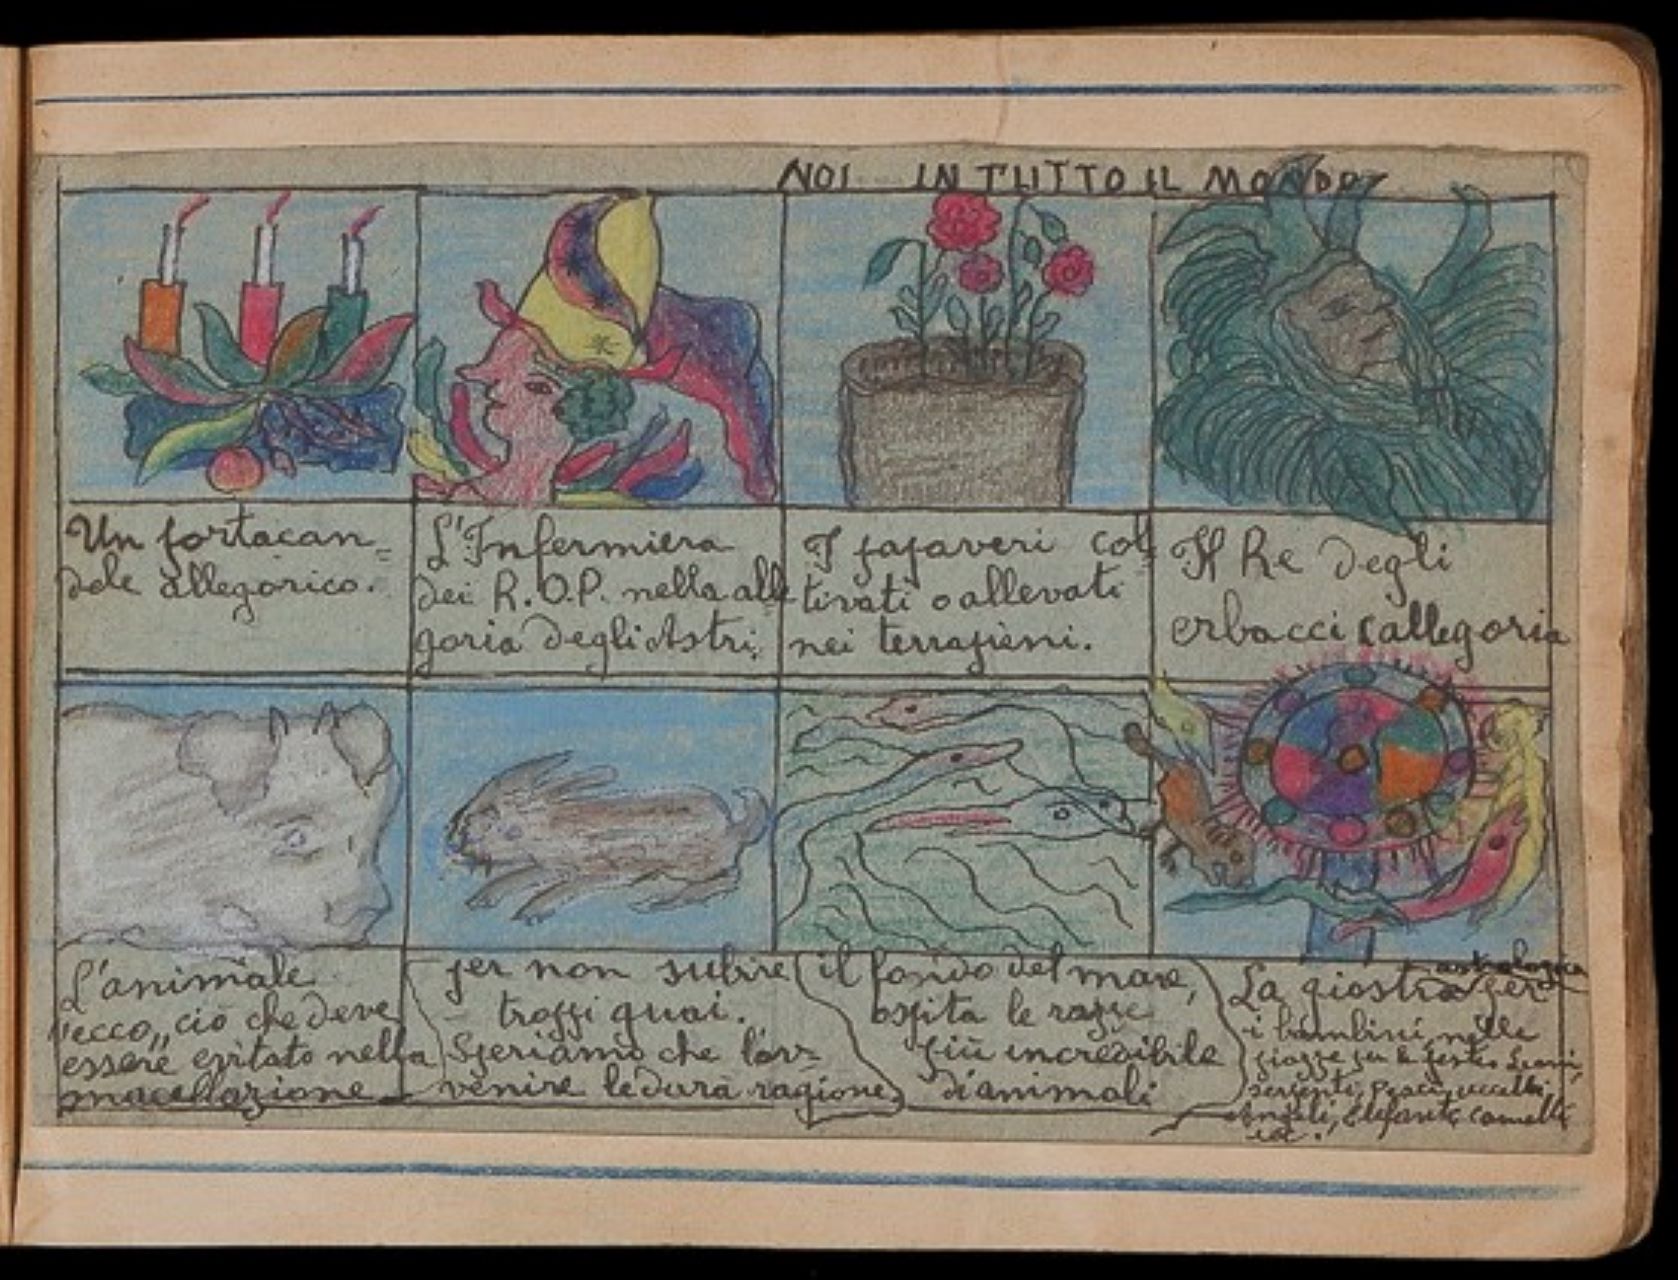 NOI IN TUTTO IL MONDO
Un portacan=
dele allegorico.
L'Infermiera
dei R.O.P. nella alle
goria degli Astri.
I papaveri col=
tivati o allevati
nei terrapieni.
Il Re degli
erbacci (allegoria
L'animale
"ecco,, ciò che deve
essere evitato nella
macellazione
per non subire
troppi guai.
Speriamo che l'av=
venire le darà ragione.
il fondo del mare,
ospita le razze
più incredibile
di animali
La giostra astrologica per
i bambini, nelle
piazze per le feste. Leoni,
serpenti, pesci, uccelli,
Angeli, Elefanti, Camelli